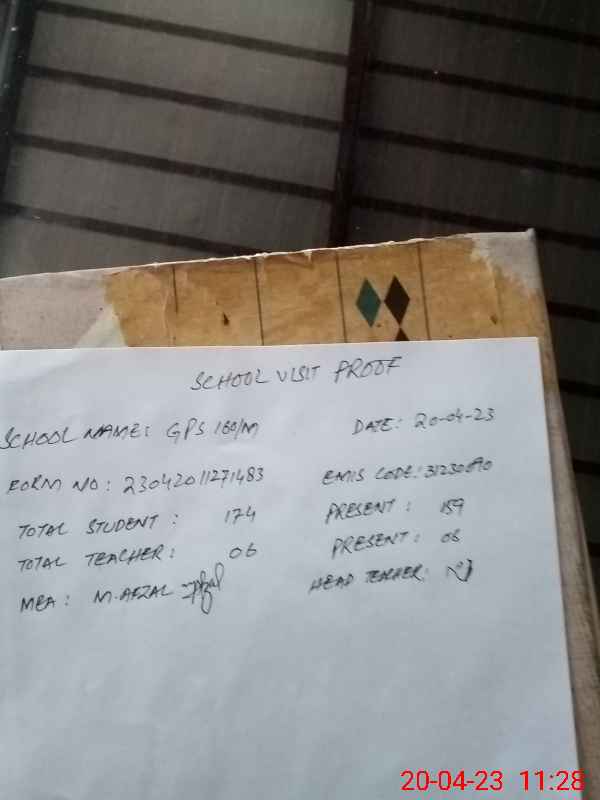 SCHOOL VISIT PROOF
SCHOOL NAME: GPS 160/M DATE: 20-04-23
FORM NO: 23042011271483 EMIS CODE: 31230090
TOTAL STUDENT: 174 PRESENT: 159
TOTAL TEACHER: 06 PRESENT: 06
MEA: M. AFZAL HEAD TEACHER:
20-04-23 11:28